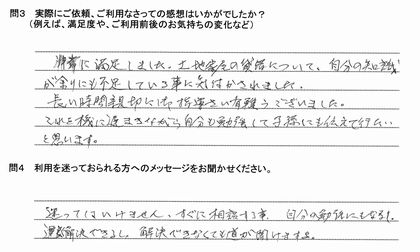 問3　実際にご依頼、ご利用なさっての感想はいかがでしたか？
(例えば、満足度や、ご利用前後のお気持ちの変化など)
非常に満足しました。土地家屋の貸借について、自分の知識
が余りにも不足している事に気付かされました。
長い時間親切に御指導さい有難うございました。
これを機に遅まきながら自分も勉強して子孫にも伝えて行たい
と思います。
問4　利用を迷っておられる方へのメッセージをお聞かせください。
迷ってはいけません、すぐに相談する事　自分の勉強にもなるし
解決できるし、解決できなくても道が開けますよ。